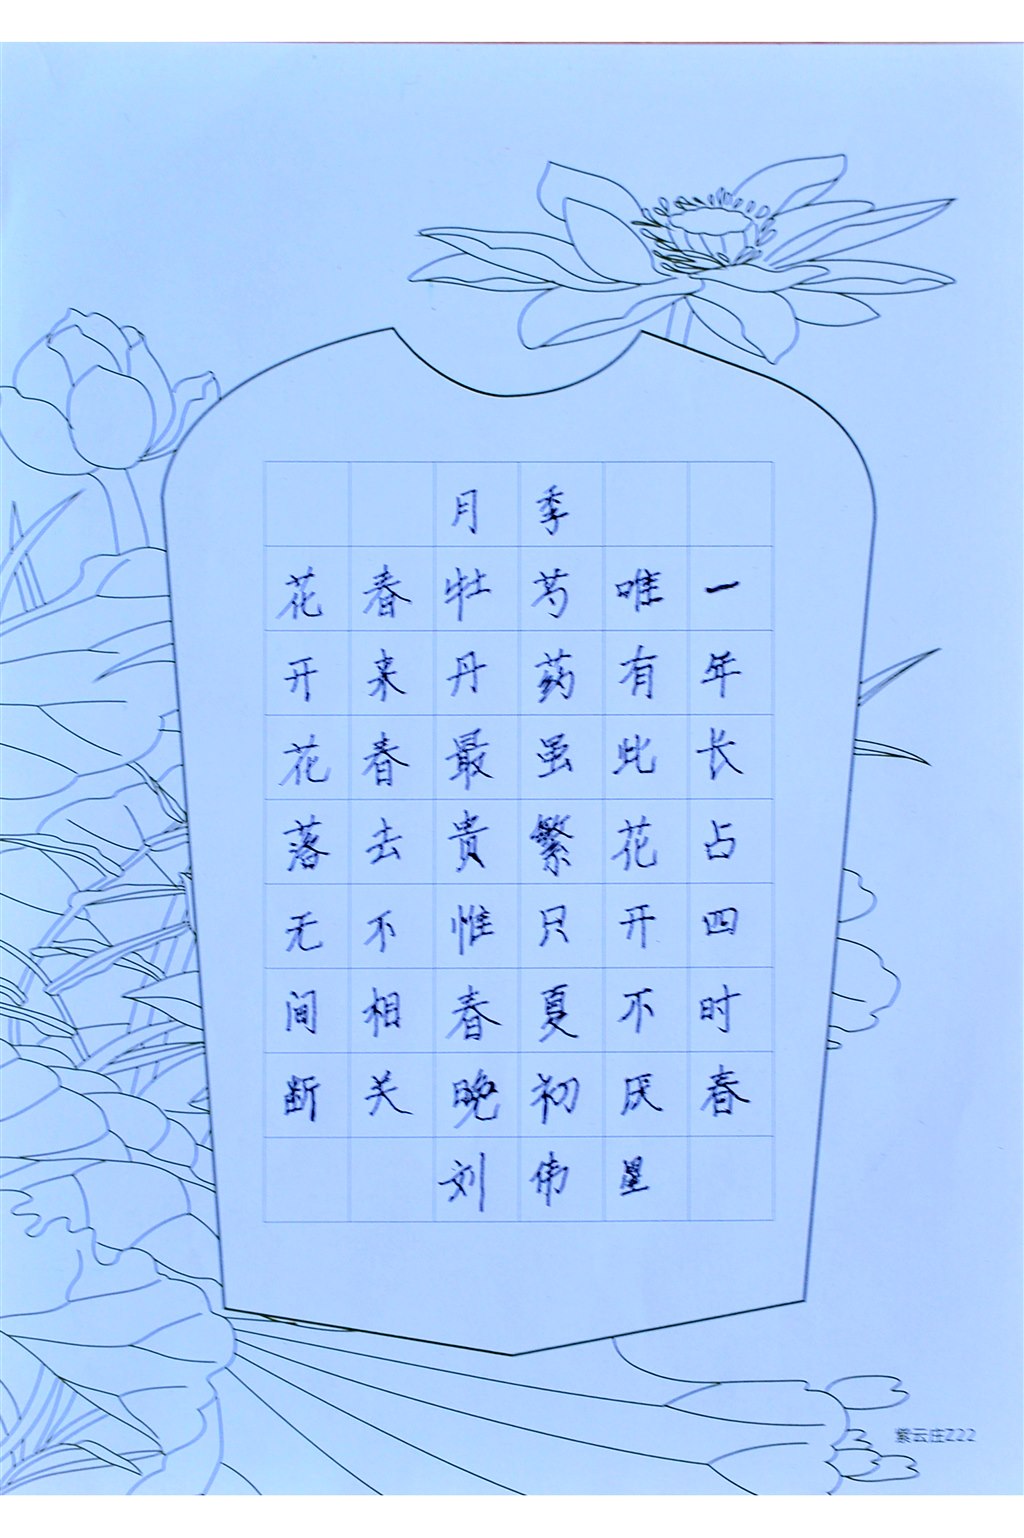 月季
花开花落无间断
春来春去不相关
牡丹最贵惟春晚
芍药虽繁只夏初
唯有此花开不厌
一年长占四时春
刘伟星
紫云庄Z22